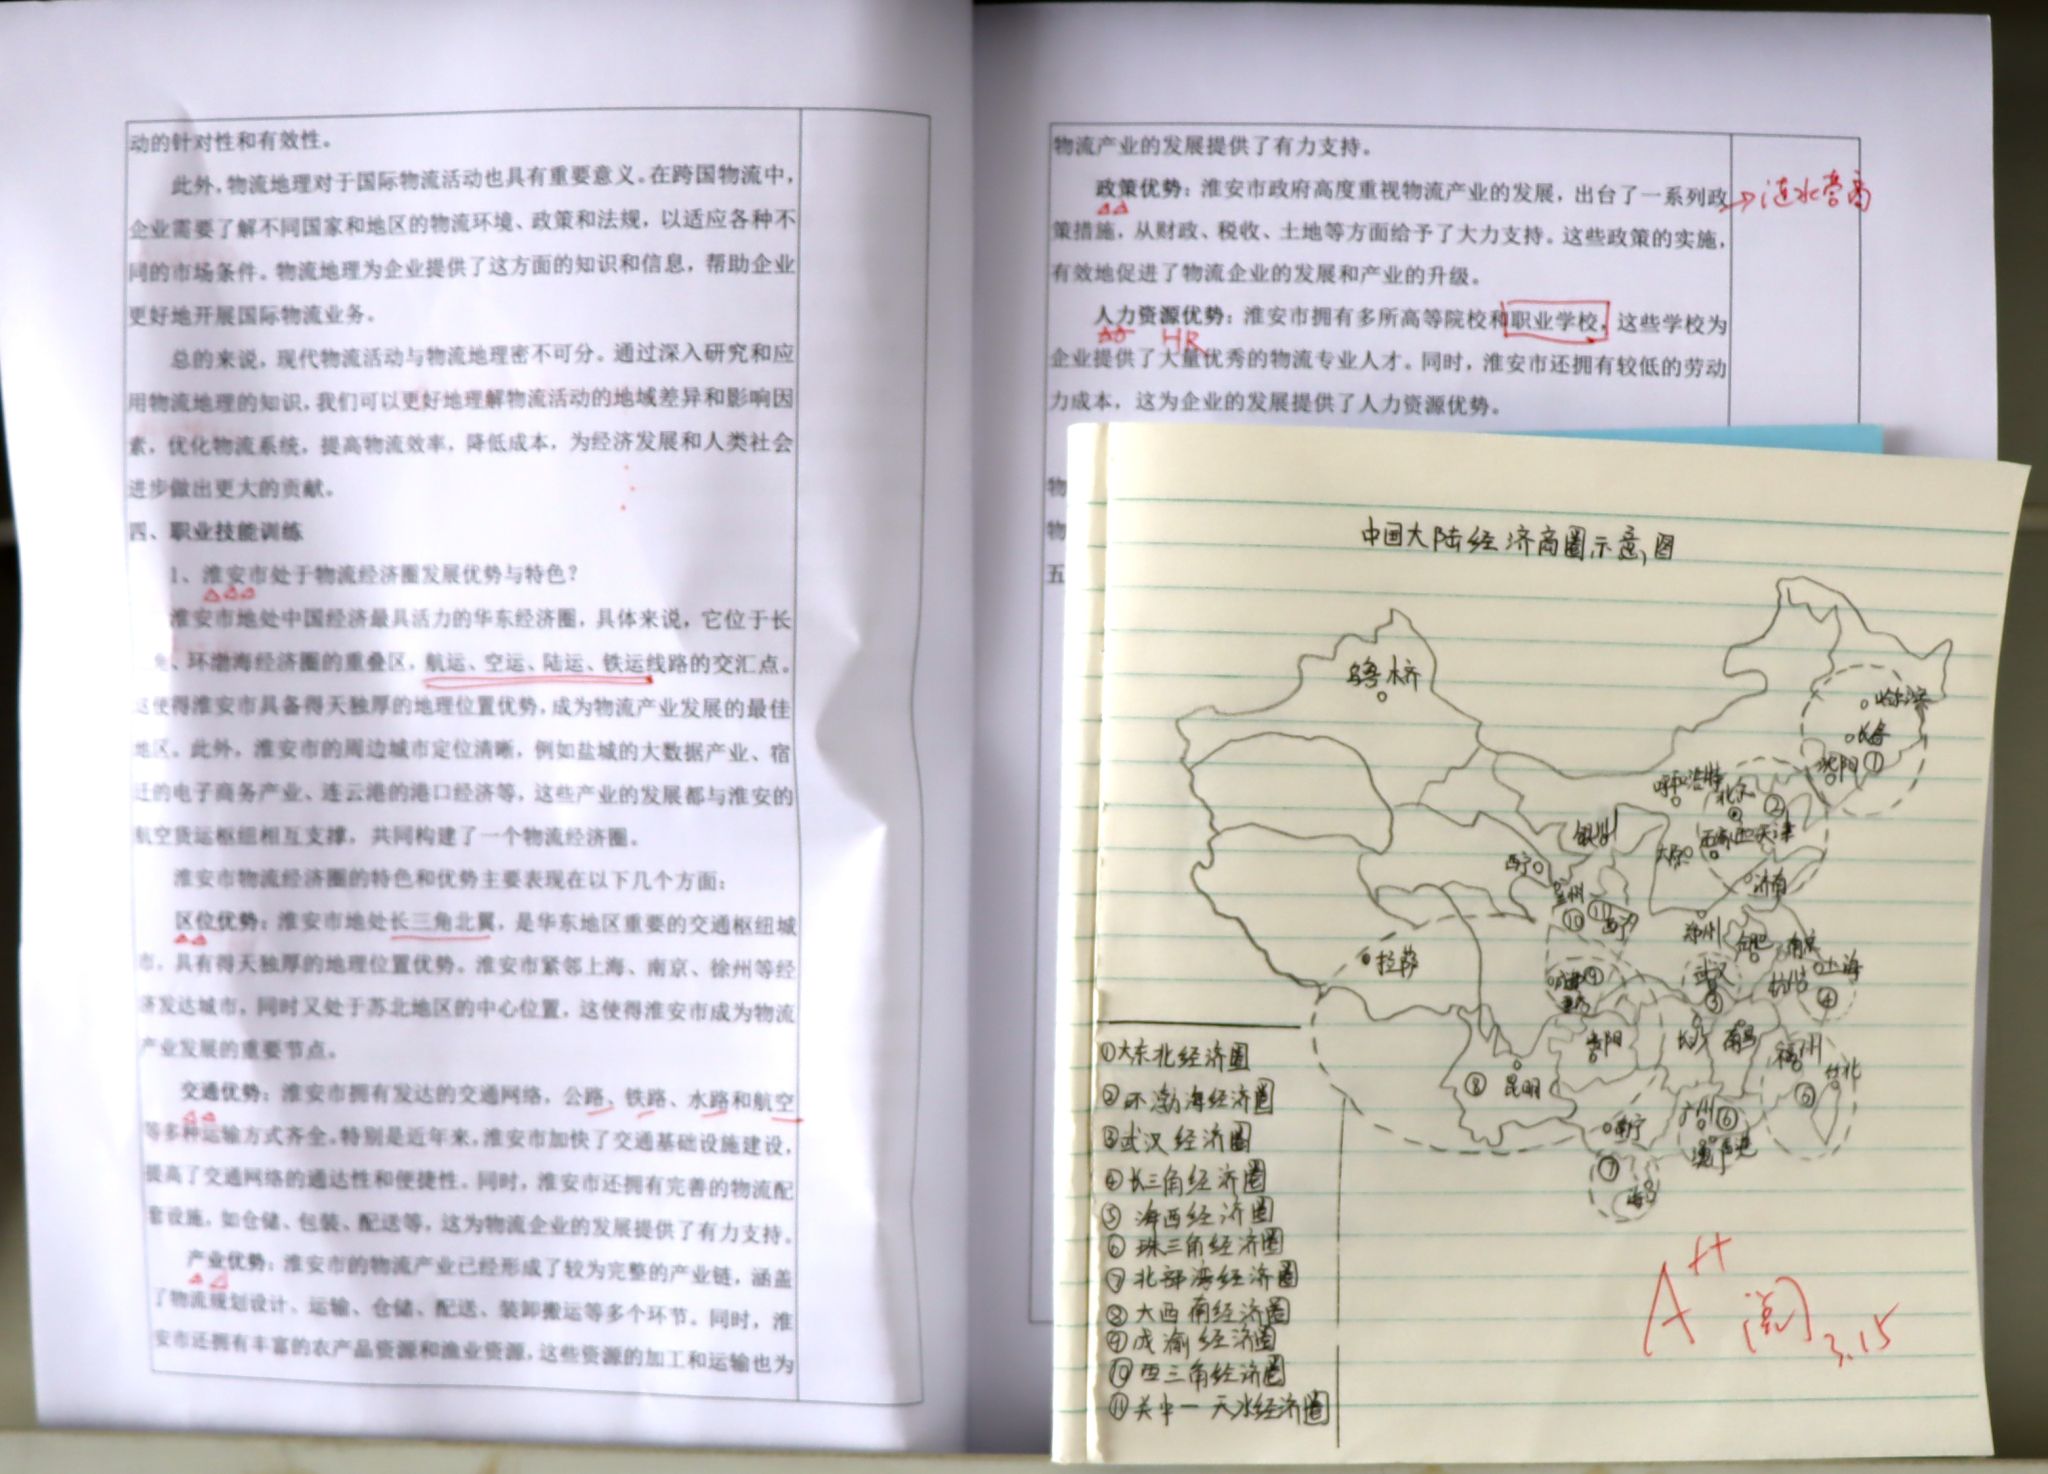 动的针对性和有效性。
此外，物流地理对于国际物流活动也具有重要意义。在跨国物流中，
企业需要了解不同国家和地区的物流环境、政策和法规，以适应各种不
同的市场条件。物流地理为企业提供了这方面的知识和信息，帮助企业
更好地开展国际物流业务。
总的来说，现代物流活动与物流地理密不可分。通过深入研究和应
用物流地理的知识，我们可以更好地理解物流活动的地域差异和影响因
素，优化物流系统，提高物流效率，降低成本，为经济发展和人类社会
进步做出更大的贡献。
四、职业技能训练
1、淮安市处于物流经济圈发展优势与特色？
淮安市地处中国经济最具活力的华东经济圈，具体来说，它位于长
角、环渤海经济圈的重叠区，航运、空运、陆运、铁运线路的交汇点。
这使得淮安市具备得天独厚的地理位置优势，成为物流产业发展的最佳
地区。此外，淮安市的周边城市定位清晰，例如盐城的大数据产业、宿
迁的电子商务产业、连云港的港口经济等，这些产业的发展都与淮安的
航空货运枢纽相互支撑，共同构建了一个物流经济圈。
淮安市物流经济圈的特色和优势主要表现在以下几个方面：
区位优势：淮安市地处长三角北翼，是华东地区重要的交通枢纽城
市，具有得天独厚的地理位置优势。淮安市紧邻上海、南京、徐州等经
济发达城市，同时又处于苏北地区的中心位置，这使得淮安市成为物流
产业发展的重要节点。
交通优势：淮安市拥有发达的交通网络，公路、铁路、水路和航空
等多种运输方式齐全。特别是近年来，淮安市加快了交通基础设施建设，
提高了交通网络的通达性和便捷性。同时，淮安市还拥有完善的物流配
套设施，如仓储、包装、配送等，这为物流企业的发展提供了有力支持。
产业优势：淮安市的物流产业已经形成了较为完整的产业链，涵盖
了物流规划设计、运输、仓储、配送、装卸搬运等多个环节。同时，淮
安市还拥有丰富的农产品资源和渔业资源，这些资源的加工和运输也为
物流产业的发展提供了有力支持。
政策优势：淮安市政府高度重视物流产业的发展，出台了一系列政
→涟水营商
策措施，从财政、税收、土地等方面给予了大力支持。这些政策的实施，
有效地促进了物流企业的发展和产业的升级。
人力资源优势：淮安市拥有多所高等院校和职业学校，这些学校为
HR
企业提供了大量优秀的物流专业人才。同时，淮安市还拥有较低的劳动
力成本，这为企业的发展提供了人力资源优势。
物
物
五
中国大陆经济商圈示意图
乌鲁木齐
哈尔滨
长春
沈阳
①
呼和浩特
北京
②
天津
石家庄
太原
济南
银川
西宁
兰州
⑩
⑪
郑州
合肥
南京
上海
④
杭州
武汉
③
拉萨
⑨
重庆
贵阳
长沙
南昌
福州
台北
⑤
⑧
昆明
南宁
广州
⑥
⑦
①大东北经济圈
②环渤海经济圈
③武汉经济圈
④长三角经济圈
⑤海西经济圈
⑥珠三角经济圈
⑦北部湾经济圈
⑧大西南经济圈
⑨成渝经济圈
⑩西三角经济圈
⑪关中一天水经济圈
A++
阅
3.15